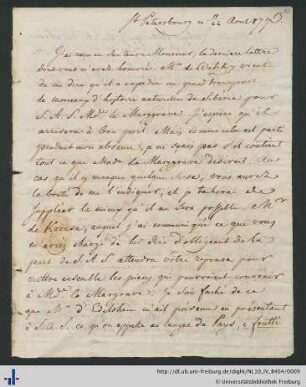 St Petersbourg ce 22 Aout 177
J'ai reçu en son tems Monsieur, la derniere lettre
dont vous m'avez honoré. Mr. de vient
de me dire qu'il a expedié un grand transport
de morceaux d'histoire naturelle de Siberie pour
S. A. S. Mde. la Margrave. J'espere qu'il
arrivera à bon port. Mais comme cela est parti
pendant mon absence, je ne sçais pas s'il contient
tout ce que Made la Margrave desiroit. Au
cas qu'il y manque quelque chose, vous aurez
la bonté de me l'indiquer, et je tacherai de
suppleer le mieux qu'il me sera possible. Mr
de Kruse, auquel j'ai communiqué ce que vous
m'aviez chargé de lui dire d'obligeant de la
part de S. A. S. attendra votre reponse pour
mettre ensemble les pieces qui pourroient convenir
à Mde. la Margrave. Je suis faché de ce
que Mr. d' m'ait prevenu en présentant
à S. A. S. ce qu'on appelle en langue du Pays,
http://dl.ub.uni-freiburg.de/diglit/NL10_IV_8464/0005